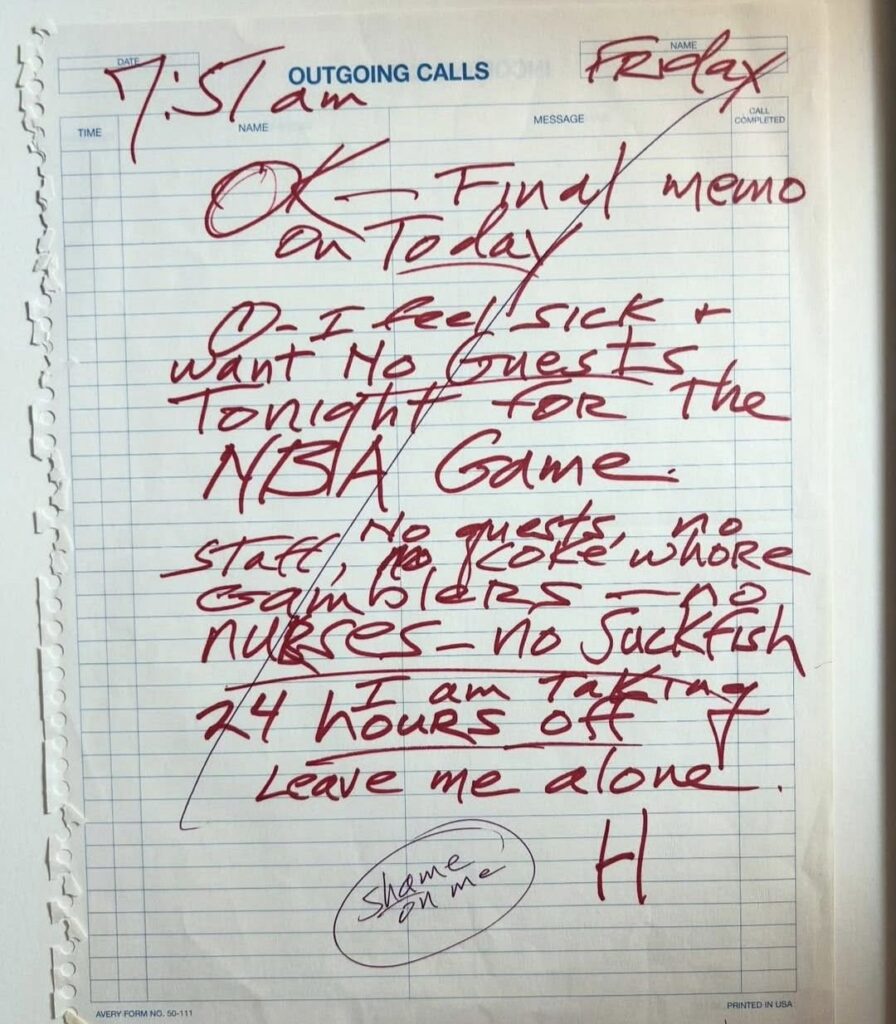 DATE
NAME
OUTGOING CALLS
7:51 am
Friday
TIME
NAME
MESSAGE
CALL
COMPLETED
OK — Final memo
on Today
1 - I feel sick +
want No Guests
Tonight for The
NBA Game.
No guests, no
staff, no coke whore
Gamblers — no
nurses — no Suckfish
I am Taking
24 hours off
Leave me alone.
H
shame
on me
AVERY FORM NO. 50-111
PRINTED IN USA